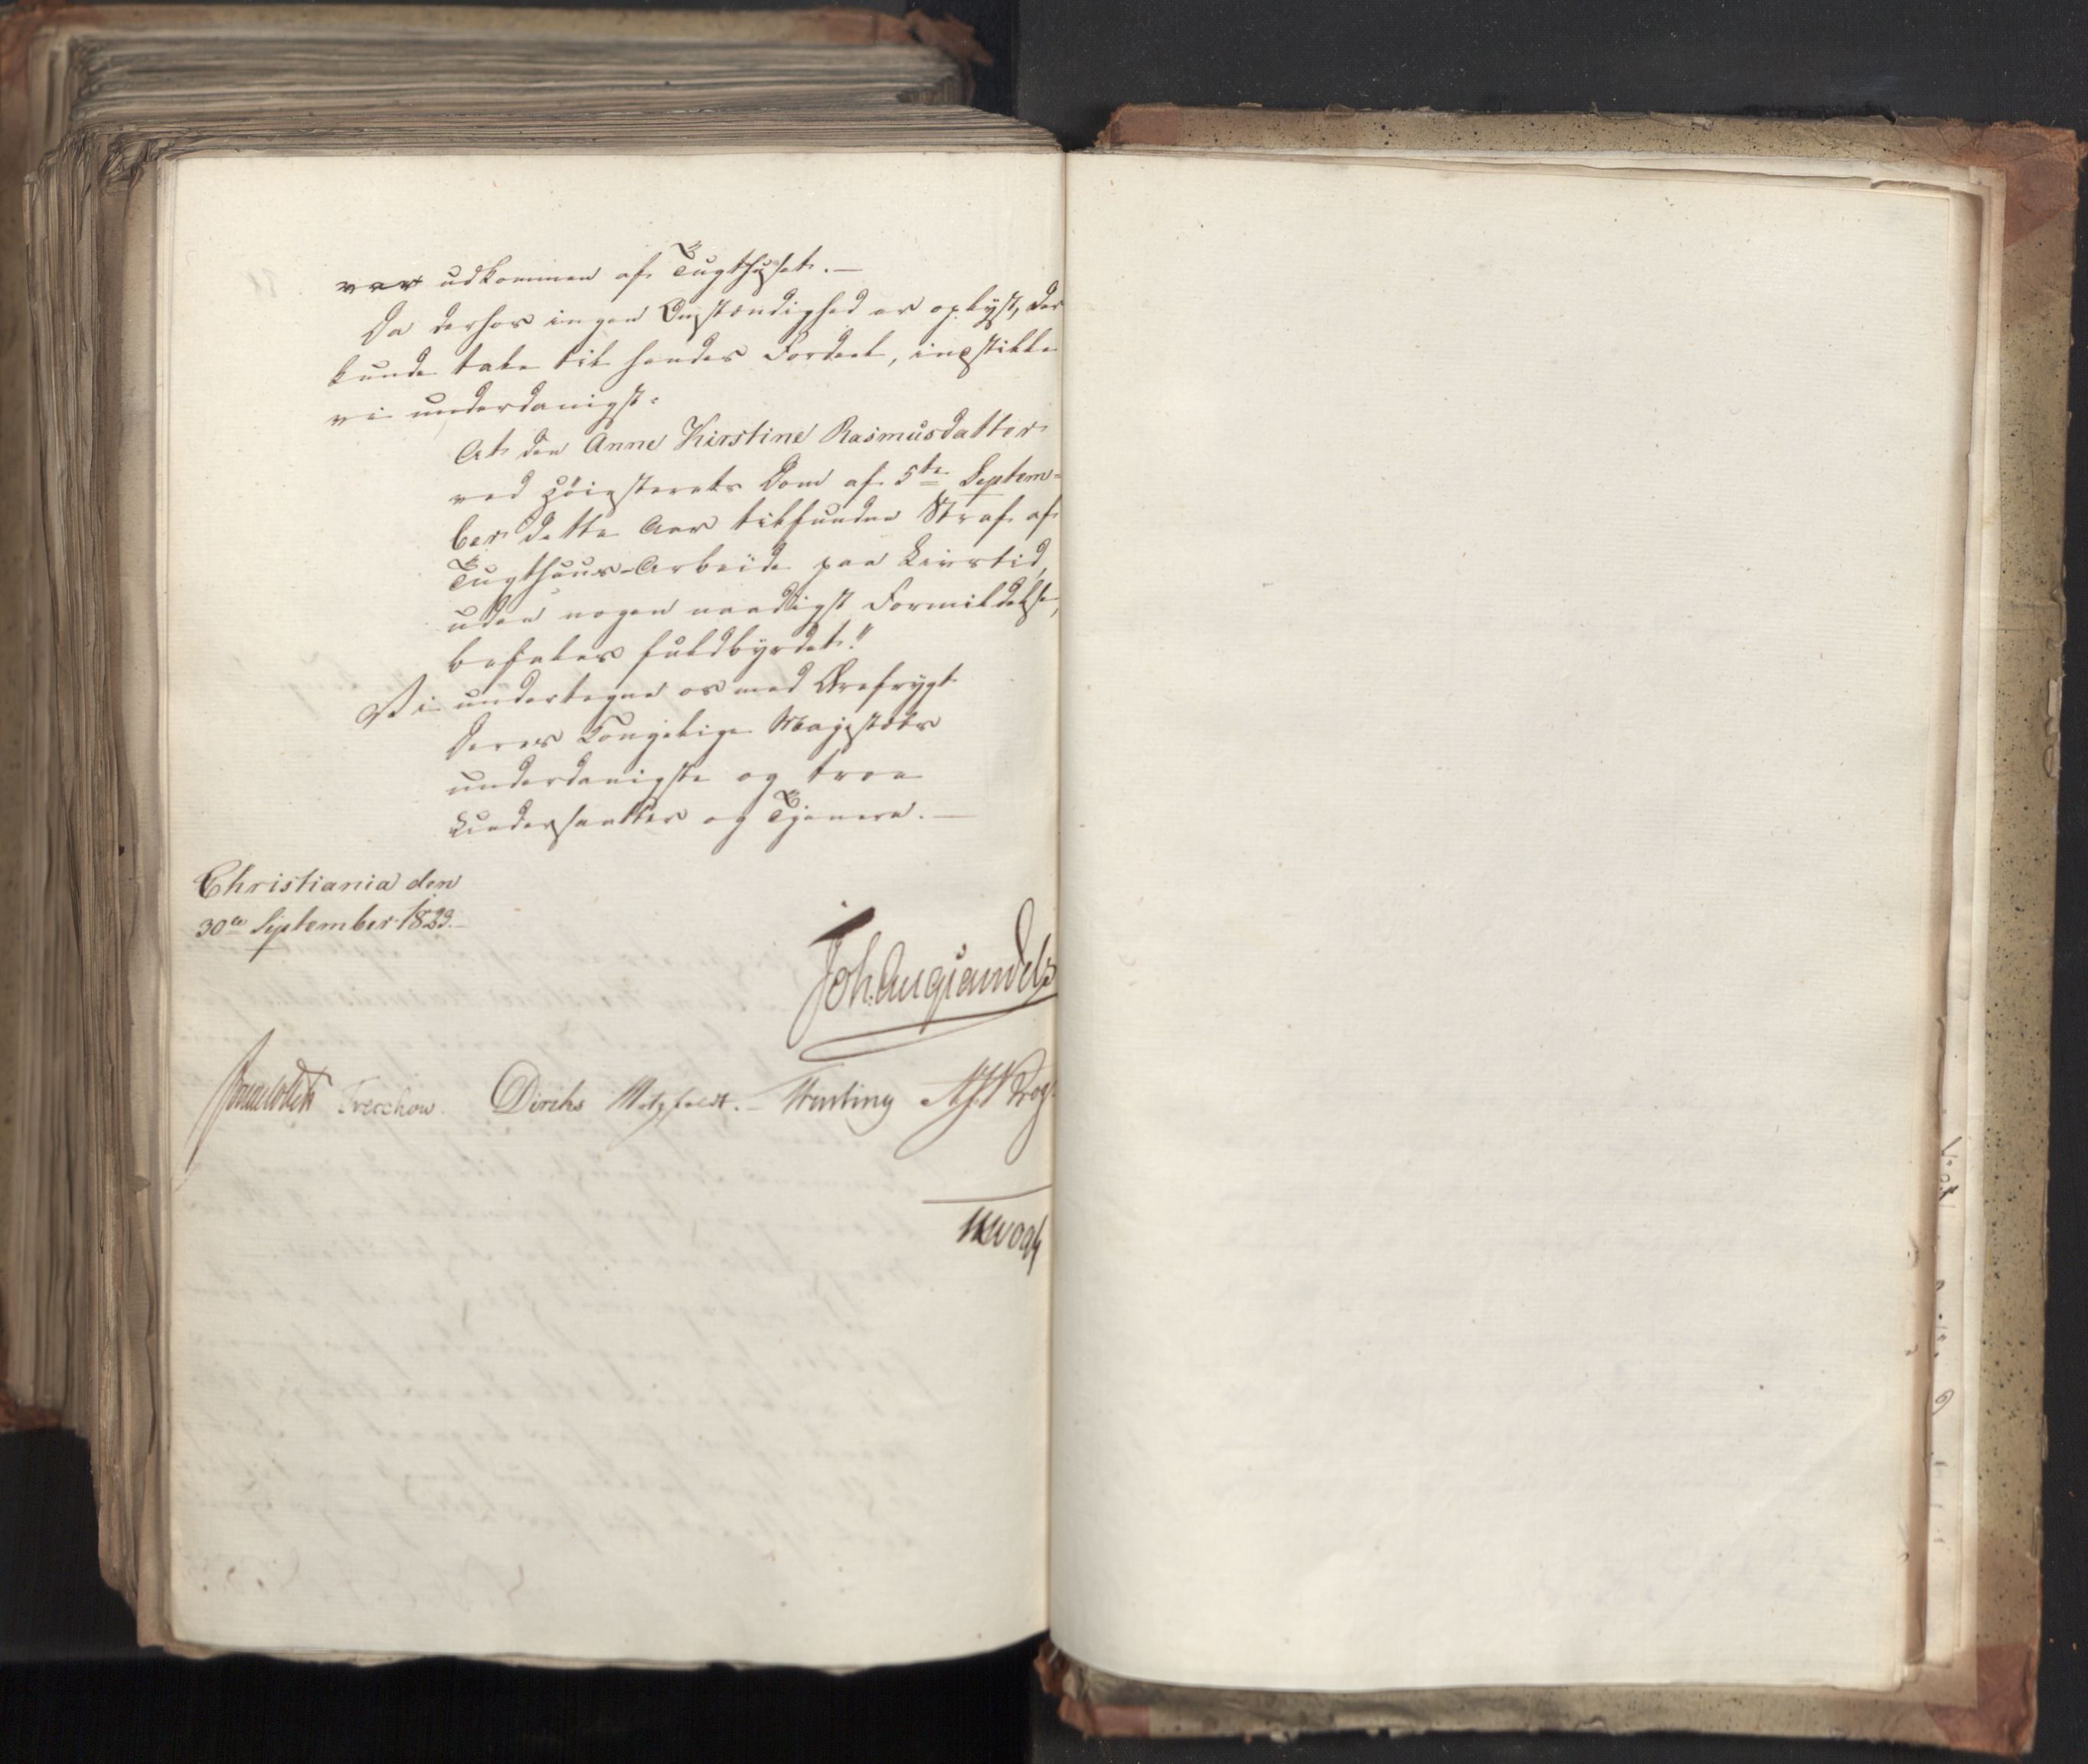 var udkommen af Tugthuset. —
Da derhos ingen Omstændighed er oplyst, der
kunde tale til hendes Fordeel, indstille
vi underdanigst:
At den Anne Kirstine Rasmusdatter
ved Høiesterets Dom af 5te Septem-
ber dette Aar tilfundne Straf af
Tugthuus-Arbeide paa Livstid,
uden nogen naadigst Formildelse,
befales fuldbyrdet."
Vi undertegne os med Ærefrygt
Deres Kongelige Majestæts
underdanigste og troe
Undersaatter og Tjenere. —
Christiania den
30te September 1823. —
Joh. Aug Sandels
Sommerhielm Treschow. Diriks Motzfeldt. — Fasting M. Krog